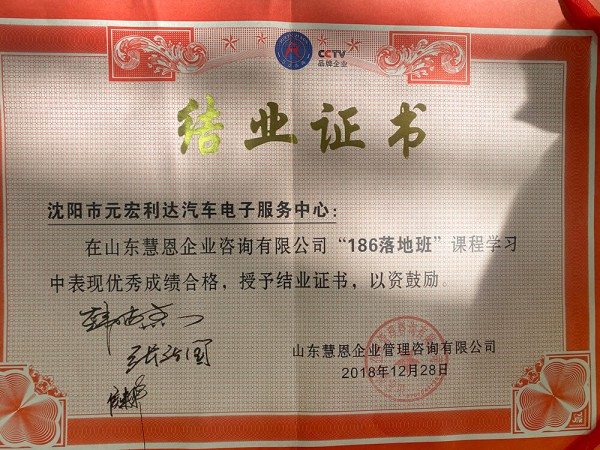 CCTV
品牌企业
结业证书
沈阳市元宏利达汽车电子服务中心：
在山东慧恩企业咨询有限公司“186落地班”课程学习
中表现优秀成绩合格，授予结业证书，以资鼓励。
山东慧恩企业管理咨询有限公司
2018年12月28日